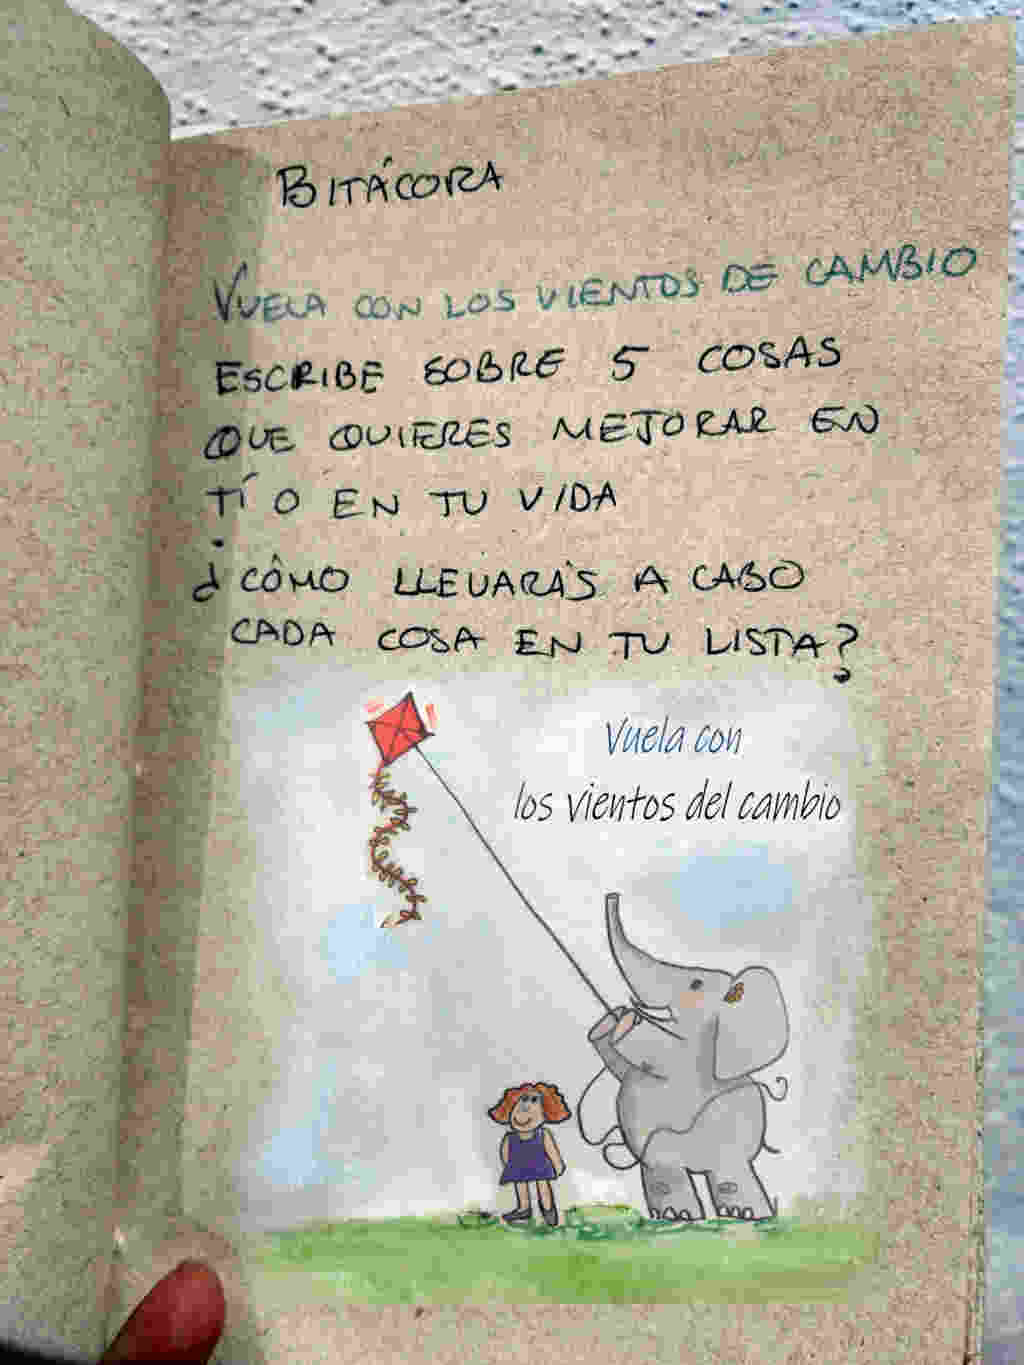 BITÁCORA
VUELA CON LOS VIENTOS DE CAMBIO
ESCRIBE SOBRE 5 COSAS
QUE QUIERES MEJORAR EN
TÍ O EN TU VIDA
¿CÓMO LLEVARÁS A CABO
CADA COSA EN TU LISTA?
Vuela con
los vientos del cambio